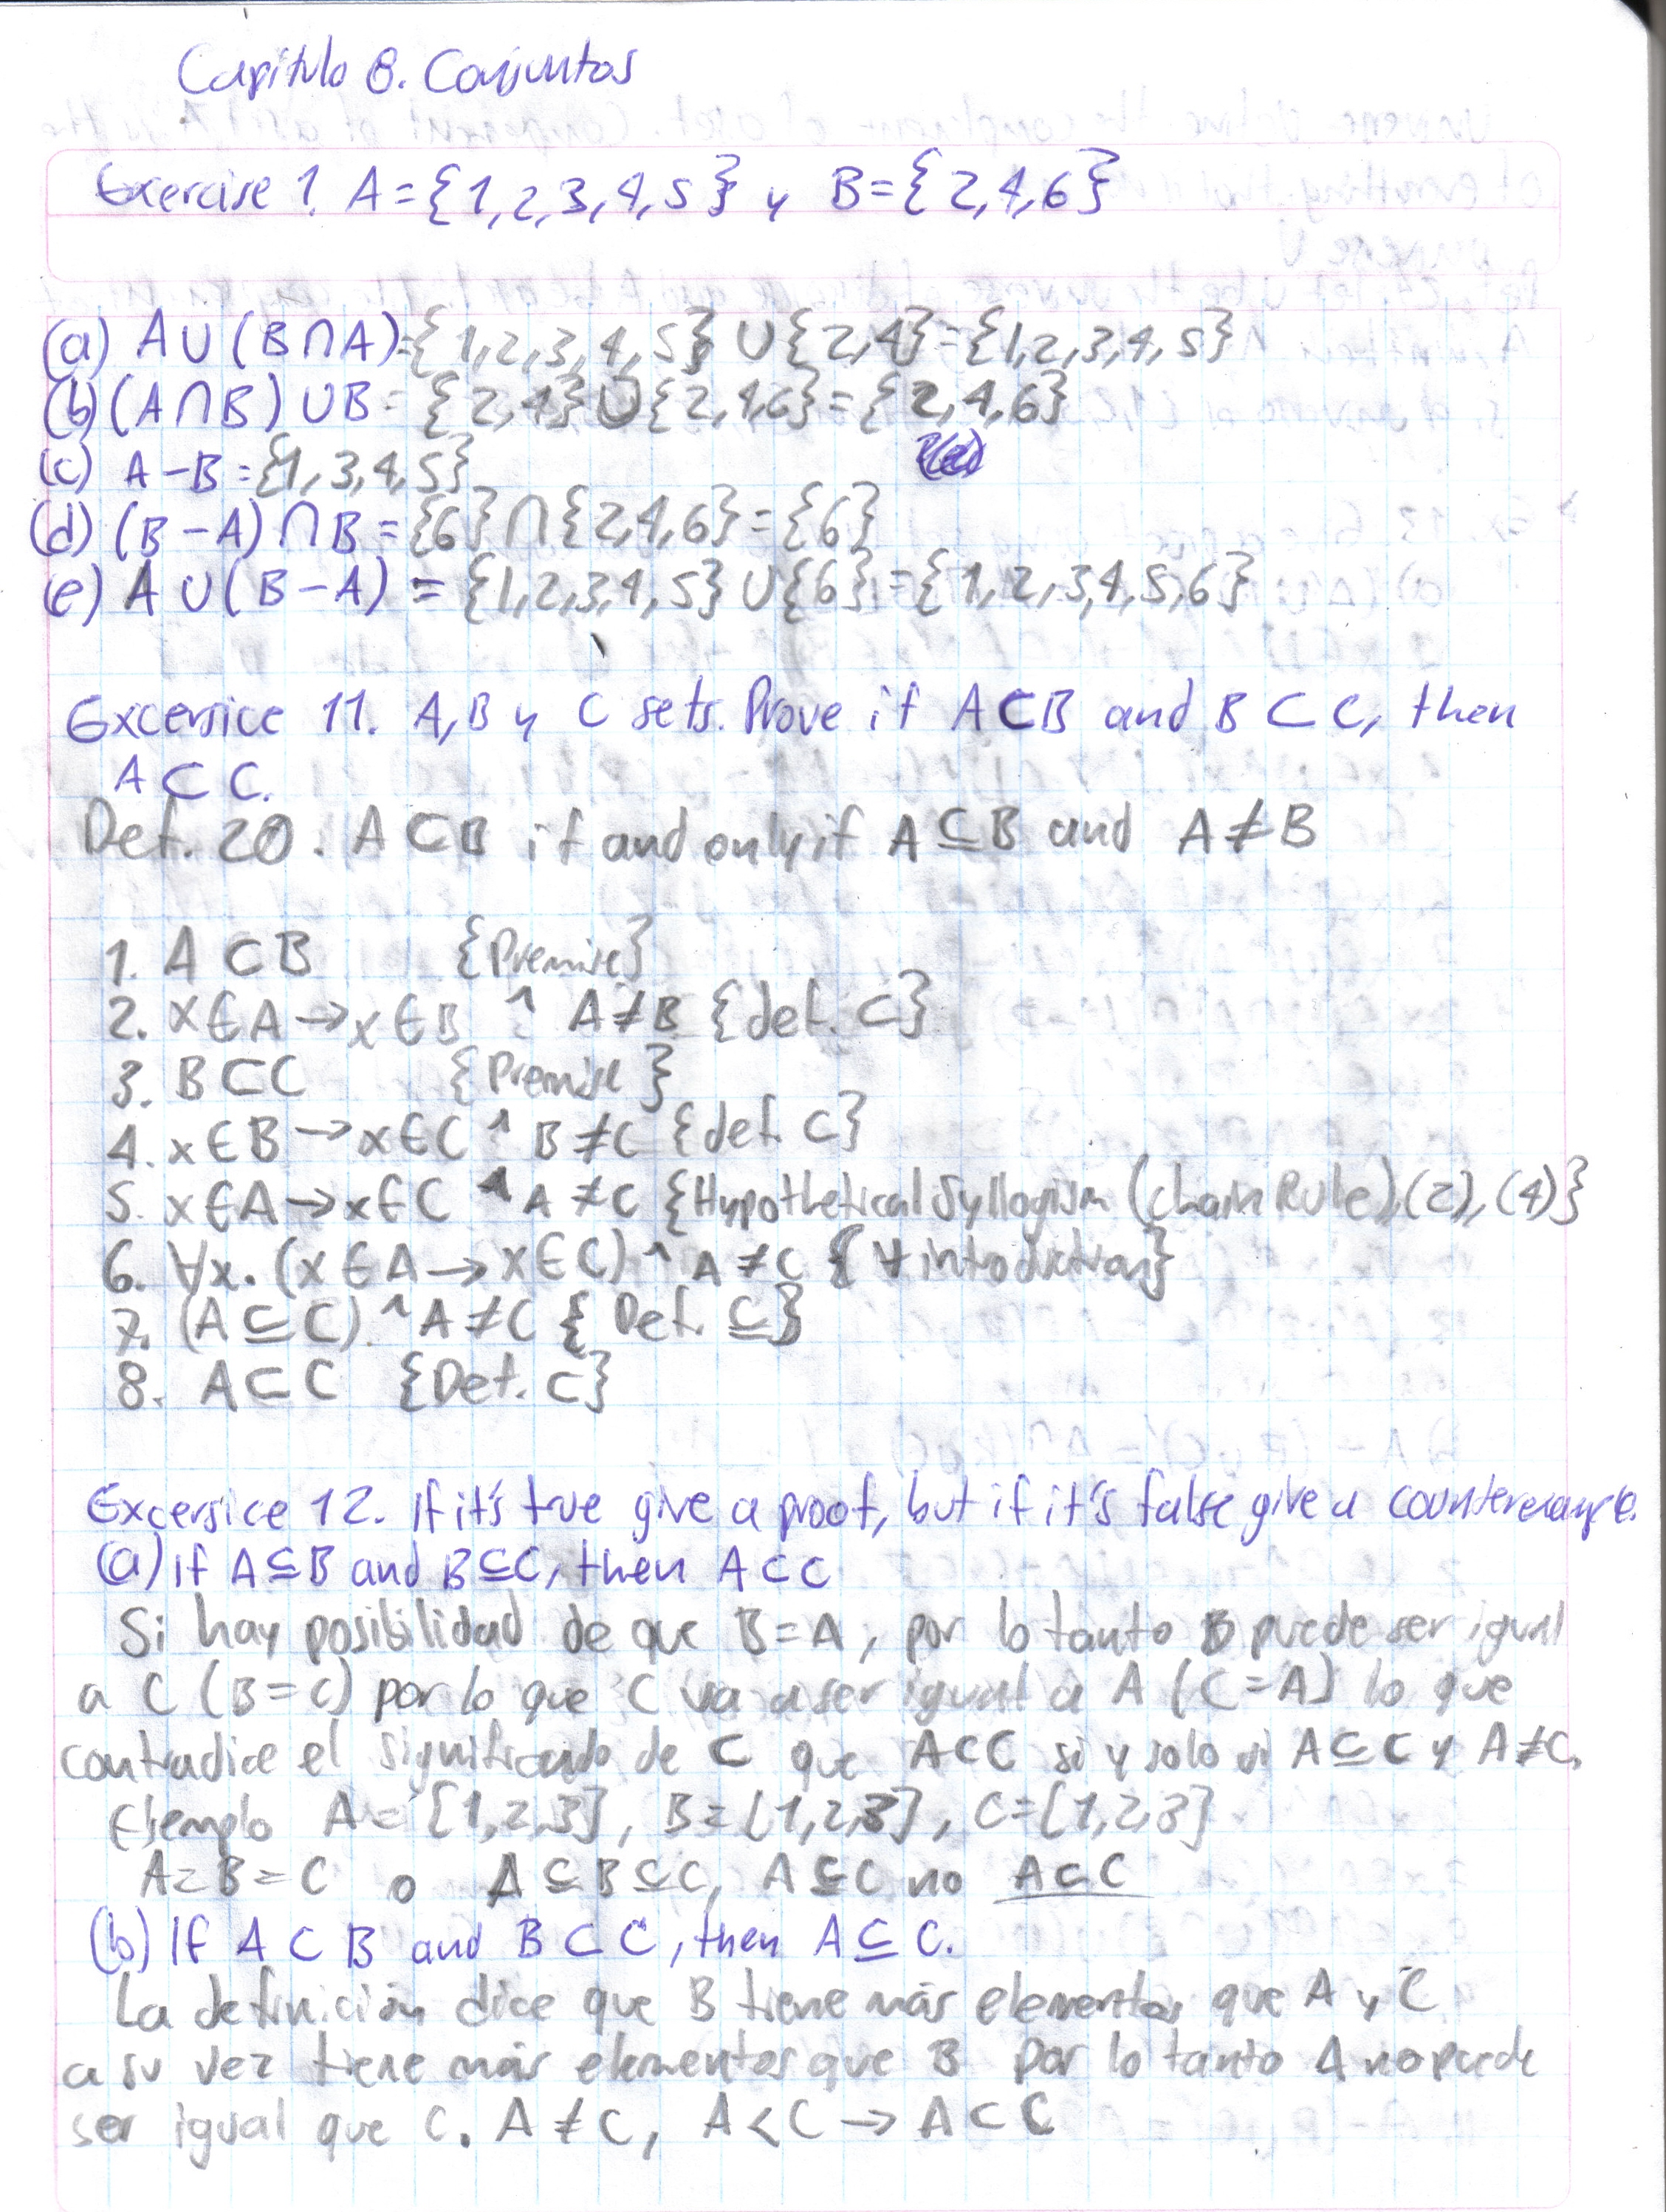 Capítulo 8. Conjuntos
Exercise 1. A={1,2,3,4,5} y B={2,4,6}
(a) A∪(B∩A)={1,2,3,4,5}∪{2,4}={1,2,3,4,5}
(b) (A∩B)∪B={2,4}∪{2,4,6}={2,4,6}
(c) A-B={1,3,4,5}
(d) (B-A)∩B={6}∩{2,4,6}={6}
(e) A∪(B-A)={1,2,3,4,5}∪{6}={1,2,3,4,5,6}
Excersice 11. A,B y C sets. Prove if A⊂B and B⊂C, then
A⊂C.
Def. 20. A⊂B if and only if A⊆B and A≠B
1. A⊂B {Premise}
2. x∈A→x∈B ^ A≠B {def. ⊂}
3. B⊂C {Premise}
4. x∈B→x∈C ^ B≠C {def. ⊂}
5. x∈A→x∈C ^ A≠C {Hypothetical Syllogism (chain Rule),(2),(4)}
6. ∀x.(x∈A→x∈C) ^ A≠C {∀ introduction}
7. (A⊆C) ^ A≠C {Def. ⊆}
8. A⊂C {Def. ⊂}
Excersice 12. If it's true give a proof, but if it's false give a counterexample.
(a) if A⊆B and B⊆C, then A⊂C
Si hay posibilidad de que B=A, por lo tanto B puede ser igual
a C (B=C) por lo que C va a ser igual a A (C=A) lo que
contradice el significado de ⊂ que A⊂C si y solo si A⊆C y A≠C.
Ejemplo A={1,2,3}, B={1,2,3}, C={1,2,3}
A=B=C o A⊆B⊆C, A⊆C no A⊂C
(b) If A⊂B and B⊂C, then A⊆C.
La definición dice que B tiene más elementos que A y C
a su vez tiene más elementos que B por lo tanto A no puede
ser igual que C. A≠C, A<C → A⊂C